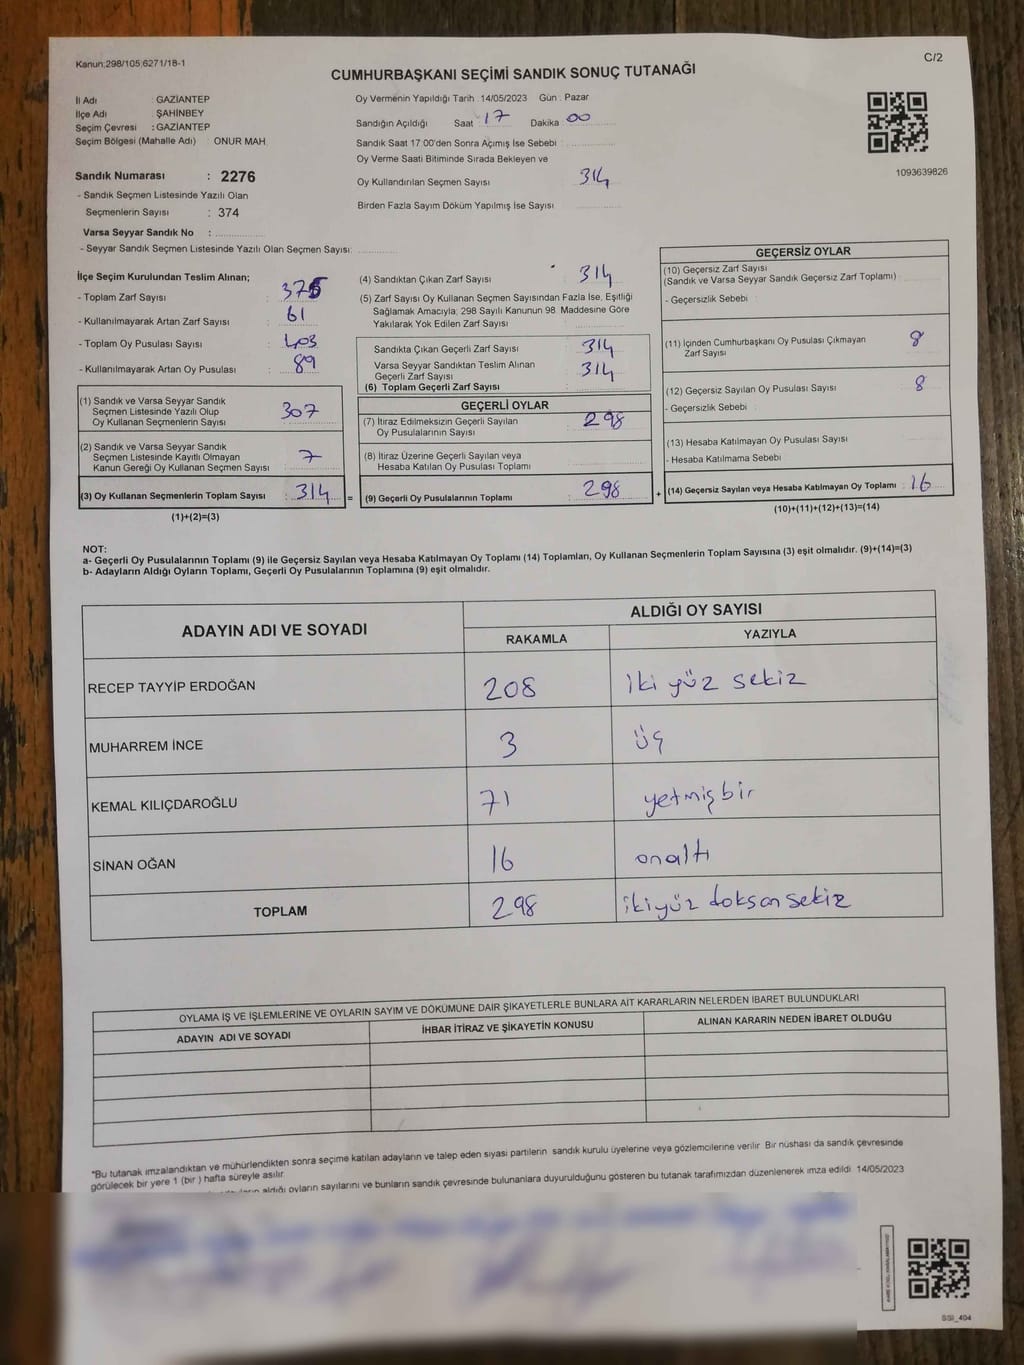 Kanun;298/105;6271/18-1
C/2
CUMHURBAŞKANI SEÇİMİ SANDIK SONUÇ TUTANAĞI
İl Adı : GAZİANTEP
İlçe Adı : ŞAHİNBEY
Seçim Çevresi : GAZİANTEP
Seçim Bölgesi (Mahalle Adı) : ONUR MAH.
Sandık Numarası : 2276
- Sandık Seçmen Listesinde Yazılı Olan
Seçmenlerin Sayısı : 374
Varsa Seyyar Sandık No :
- Seyyar Sandık Seçmen Listesinde Yazılı Olan Seçmen Sayısı:
Oy Vermenin Yapıldığı Tarih : 14/05/2023 Gün : Pazar
Sandığın Açıldığı Saat : 17 Dakika : 00
Sandık Saat 17.00'den Sonra Açımış İse Sebebi :
Oy Verme Saati Bitiminde Sırada Bekleyen ve
Oy Kullandırılan Seçmen Sayısı 314
Birden Fazla Sayım Döküm Yapılmış İse Sayısı
1093639826
İlçe Seçim Kurulundan Teslim Alınan;
- Toplam Zarf Sayısı : 375
- Kullanılmayarak Artan Zarf Sayısı : 61
- Toplam Oy Pusulası Sayısı : 403
- Kullanılmayarak Artan Oy Pusulası : 89
(1) Sandık ve Varsa Seyyar Sandık
Seçmen Listesinde Yazılı Olup
Oy Kullanan Seçmenlerin Sayısı 307
(2) Sandık ve Varsa Seyyar Sandık
Seçmen Listesinde Kayıtlı Olmayan
Kanun Gereği Oy Kullanan Seçmen Sayısı 7
(3) Oy Kullanan Seçmenlerin Toplam Sayısı : 314 =
(1)+(2)=(3)
(4) Sandıktan Çıkan Zarf Sayısı : 314
(5) Zarf Sayısı Oy Kullanan Seçmen Sayısından Fazla İse, Eşitliği
Sağlamak Amacıyla; 298 Sayılı Kanunun 98. Maddesine Göre
Yakılarak Yok Edilen Zarf Sayısı
Sandıkta Çıkan Geçerli Zarf Sayısı 314
Varsa Seyyar Sandıktan Teslim Alınan
Geçerli Zarf Sayısı 314
(6) Toplam Geçerli Zarf Sayısı
GEÇERLİ OYLAR
(7) İtiraz Edilmeksizin Geçerli Sayılan
Oy Pusulalarının Sayısı 298
(8) İtiraz Üzerine Geçerli Sayılan veya
Hesaba Katılan Oy Pusulası Toplamı
(9) Geçerli Oy Pusulalarının Toplamı : 298 +
GEÇERSİZ OYLAR
(10) Geçersiz Zarf Sayısı
(Sandık ve Varsa Seyyar Sandık Geçersiz Zarf Toplamı)
- Geçersizlik Sebebi :
(11) İçinden Cumhurbaşkanı Oy Pusulası Çıkmayan
Zarf Sayısı 8
(12) Geçersiz Sayılan Oy Pusulası Sayısı 8
- Geçersizlik Sebebi :
(13) Hesaba Katılmayan Oy Pusulası Sayısı
- Hesaba Katılmama Sebebi
(14) Geçersiz Sayılan veya Hesaba Katılmayan Oy Toplamı : 16
(10)+(11)+(12)+(13)=(14)
NOT:
a- Geçerli Oy Pusulalarının Toplamı (9) ile Geçersiz Sayılan veya Hesaba Katılmayan Oy Toplamı (14) Toplamları, Oy Kullanan Seçmenlerin Toplam Sayısına (3) eşit olmalıdır. (9)+(14)=(3)
b- Adayların Aldığı Oyların Toplamı, Geçerli Oy Pusulalarının Toplamına (9) eşit olmalıdır.
ADAYIN ADI VE SOYADI
ALDIĞI OY SAYISI
RAKAMLA YAZIYLA
RECEP TAYYİP ERDOĞAN 208 iki yüz sekiz
MUHARREM İNCE 3 üç
KEMAL KILIÇDAROĞLU 71 yetmişbir
SİNAN OĞAN 16 onaltı
TOPLAM 298 ikiyüz doksan sekiz
OYLAMA İŞ VE İŞLEMLERİNE VE OYLARIN SAYIM VE DÖKÜMÜNE DAİR ŞİKAYETLERLE BUNLARA AİT KARARLARIN NELERDEN İBARET BULUNDUKLARI
ADAYIN ADI VE SOYADI İHBAR İTİRAZ VE ŞİKAYETİN KONUSU ALINAN KARARIN NEDEN İBARET OLDUĞU
"Bu tutanak imzalandıktan ve mühürlendikten sonra seçime katılan adayların ve talep eden siyasi partilerin sandık kurulu üyelerine veya gözlemcilerine verilir. Bir nüshası da sandık çevresinde
görülecek bir yere 1 (bir) hafta süreyle asılır.
aldığı oyların sayılarını ve bunların sandık çevresinde bulunanlara duyurulduğunu gösteren bu tutanak tarafımızdan düzenlenerek imza edildi. 14/05/2023
SSI_404